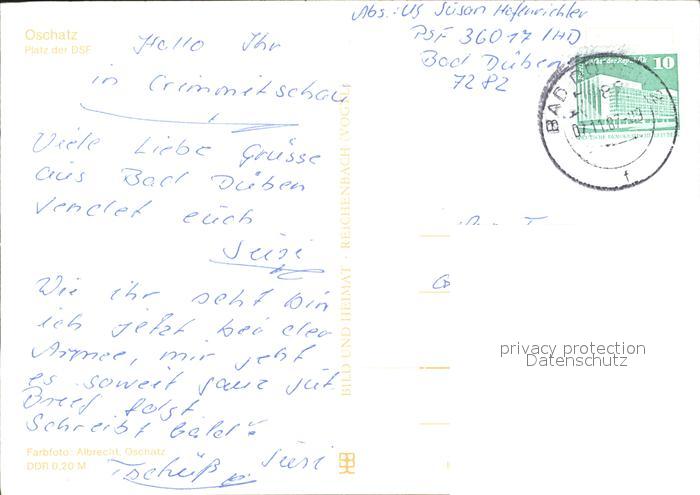 Oschatz
Platz der DSF
Hallo Ihr
in Crimmitschau
Viele Liebe Grüsse
aus Bad Düben
sendet euch
Susi
Wie ihr seht bin
ich jetzt bei der
Armee, mir geht
es soweit ganz gut
Brief folgt
Schreibt bald!
Tschüß Susi
Farbfoto: Albrecht, Oschatz
DDR 0,20 M
BILD UND HEIMAT · REICHENBACH (VOGTL)
Abs.: US Susan Hafenrichter
PSF 36017 IHD
Bad Düben
7282
10
BAD DÜ
privacy protection
Datenschutz